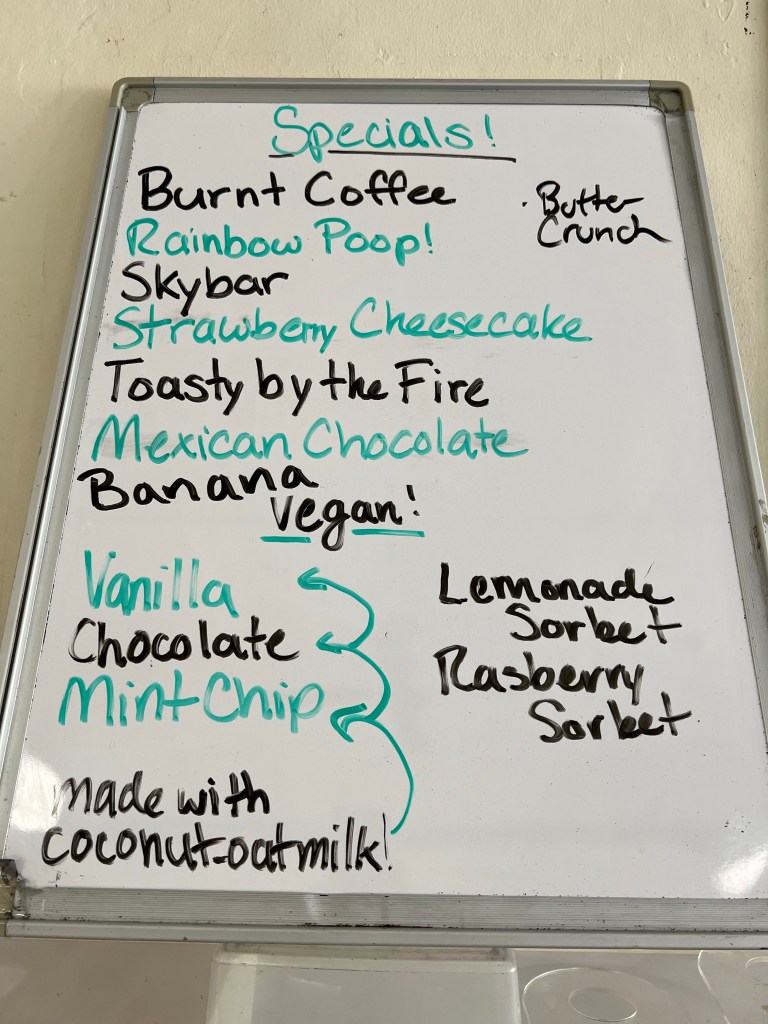 Specials!
Burnt Coffee
Rainbow Poop!
Skybar
Strawberry Cheesecake
Toasty by the Fire
Mexican Chocolate
Banana
· Butter
Crunch
Vegan!
Vanilla
Chocolate
Mint Chip
made with
coconut-oatmilk!
Lemonade
Sorbet
Rasberry
Sorbet